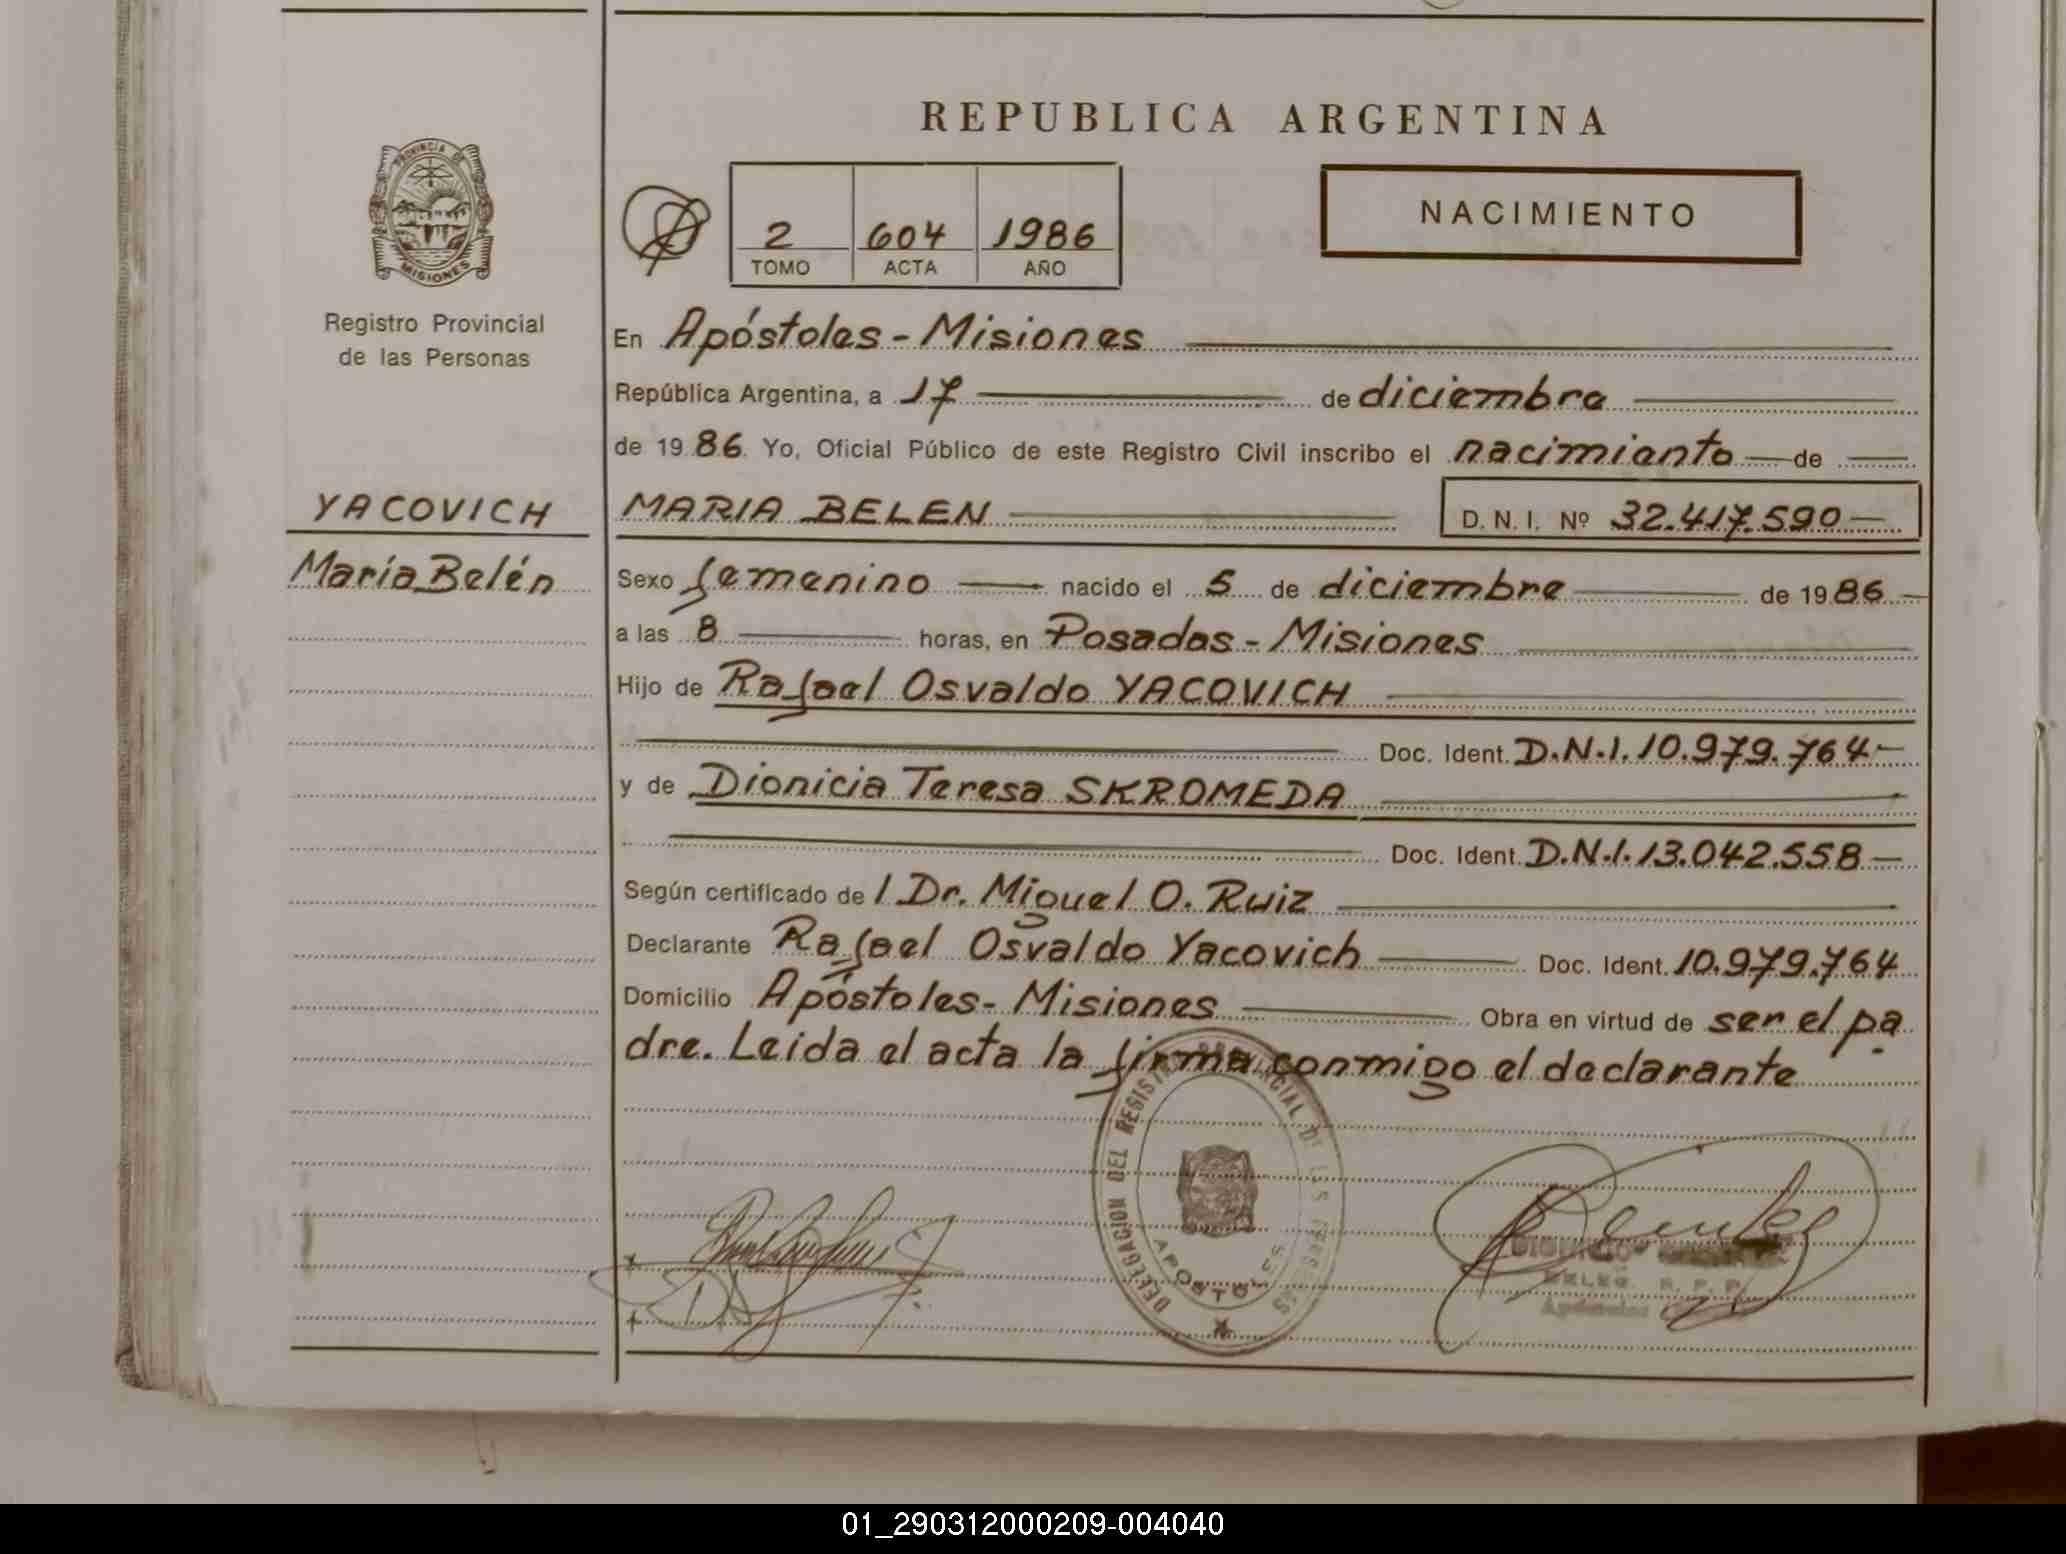 REPUBLICA ARGENTINA
PROVINCIA DE
MISIONES
Registro Provincial
de las Personas
2 604 1986
TOMO ACTA AÑO
NACIMIENTO
En Apóstoles - Misiones
República Argentina, a 17 de diciembre
de 1986. Yo, Oficial Público de este Registro Civil inscribo el nacimiento de
YACOVICH
MARIA BELEN D.N.I. Nº 32.417.590
María Belén
Sexo femenino nacido el 5 de diciembre de 1986
a las 8 horas, en Posadas - Misiones
Hijo de Rafael Osvaldo YACOVICH
Doc. Ident. D.N.I. 10.979.764
y de Dionicia Teresa SKROMEDA
Doc. Ident. D.N.I. 13.042.558
Según certificado de l Dr. Miguel O. Ruiz
Declarante Rafael Osvaldo Yacovich Doc. Ident. 10.979.764
Domicilio Apóstoles - Misiones Obra en virtud de ser el pa
dre. Leida el acta la firma conmigo el declarante
DELEGACION DEL REGISTRO PROVINCIAL DE LAS PERSONAS
APOSTOLES
DELEG. R. P. P.
Apóstoles
01_290312000209-004040